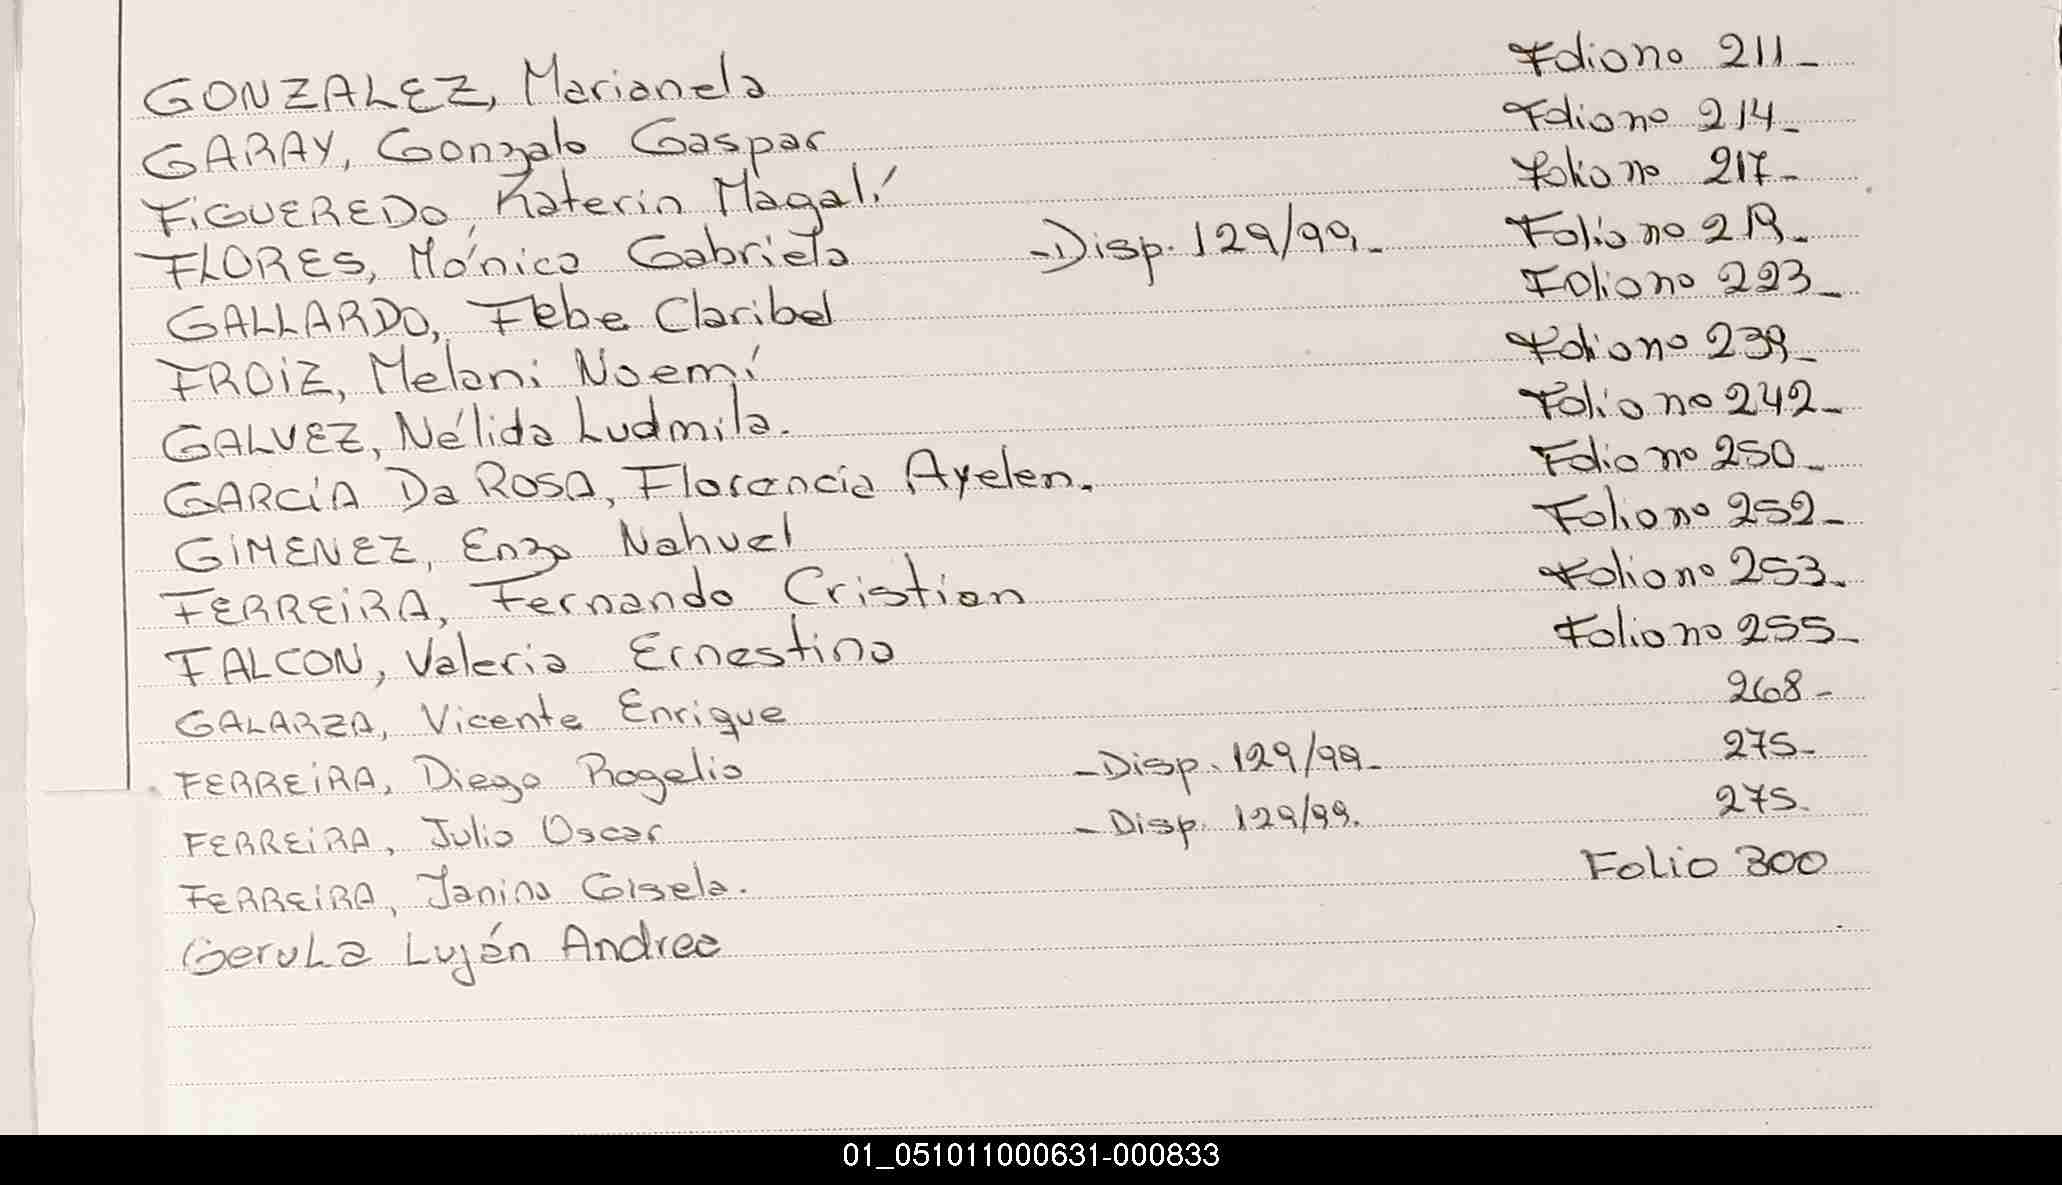 GONZALEZ, Marianela Folio no 211-
GARAY, Gonzalo Gaspar Folio no 214-
FiGUEREDO, Katerin Magalí Folio no 217-
FLORES, Mónica Gabriela -Disp. 129/99.- Folio no 219-
GALLARDO, Febe Claribel Folio no 223-
FROiZ, Melani Noemí Folio no 239-
GALVEZ, Nélida Ludmila. Folio no 242-
GARCíA Da ROSA, Florencia Ayelen. Folio no 250-
GiMENEZ, Enzo Nahuel Folio no 252-
FERREiRA, Fernando Cristian Folio no 253-
FALCON, Valeria Ernestina Folio no 255-
GALARZA, Vicente Enrique 268-
FERREiRA, Diego Rogelio -Disp. 129/99- 275-
FERREiRA, Julio Oscar -Disp. 129/99. 275.
FERREiRA, Janina Gisela. Folio 300
GeruLa Luján Andrea
01_051011000631-000833